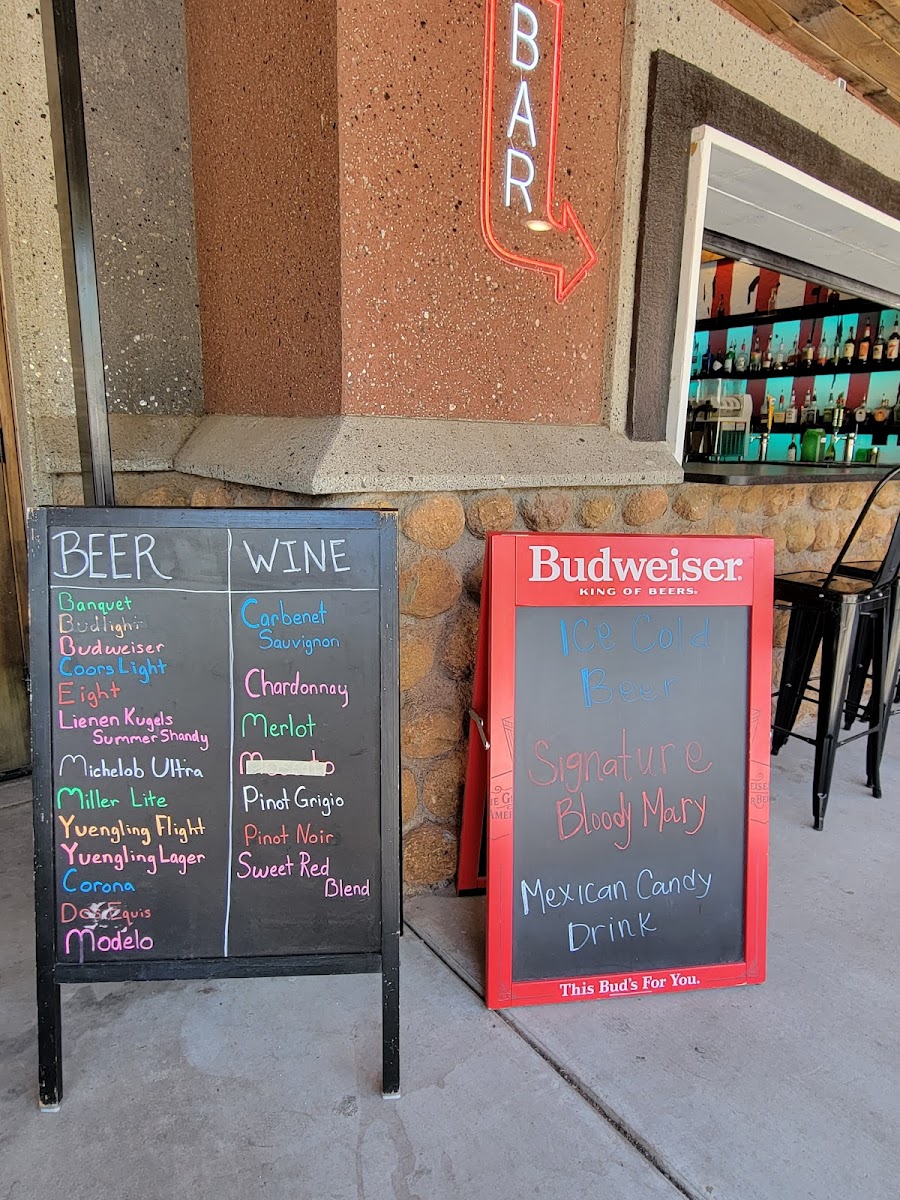 BAR
BEER
Banquet
Budlight
Budweiser
Coors Light
Eight
Lienen Kugels
Summer Shandy
Michelob Ultra
Miller Lite
Yuengling Flight
Yuengling Lager
Corona
Dos Equis
Modelo
WINE
Carbenet
Sauvignon
Chardonnay
Merlot
Pinot Grigio
Pinot Noir
Sweet Red
Blend
Budweiser.
KING OF BEERS.
Ice Cold
Beer
Signature
Bloody Mary
Mexican Candy
Drink
This Bud's For You.